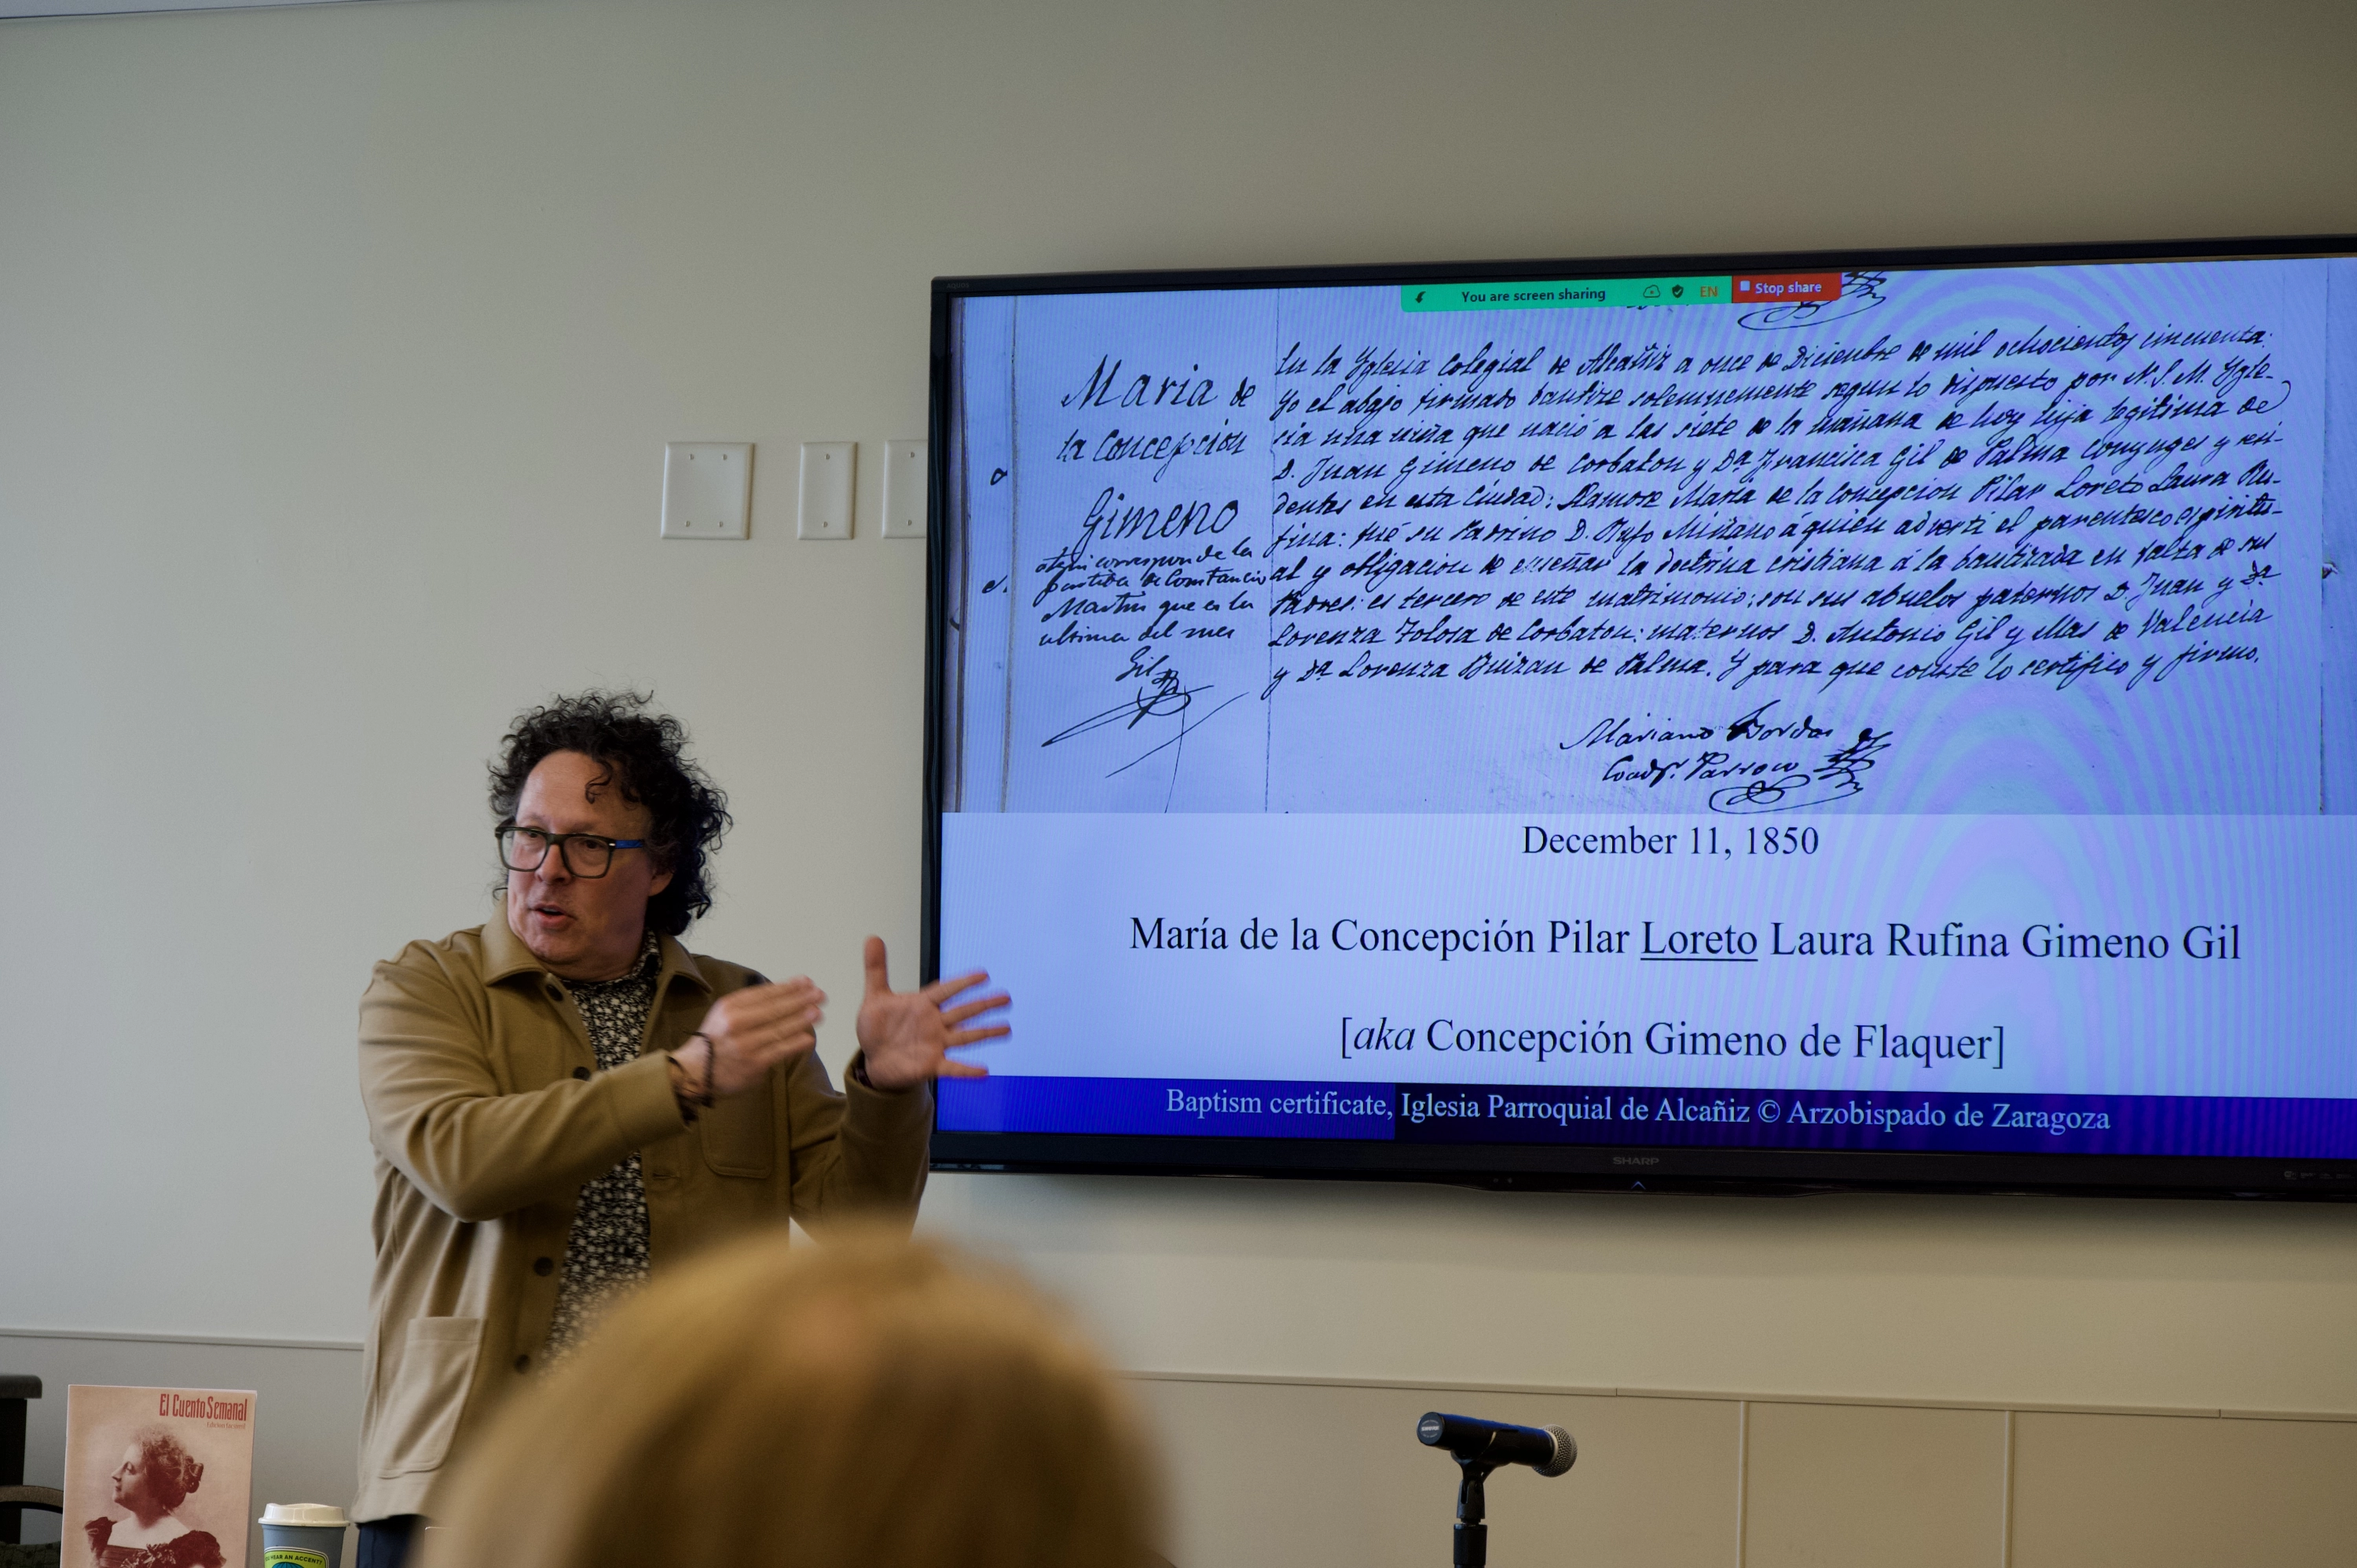 You are screen sharing EN Stop share
Maria de
la Concepcion
Gimeno
aqui corresponde la
partida de Constancio
Martin que es la
ultima del mes
Gil
En la Yglesia Colegial de Alcañiz a once de Diciembre de mil ochocientos cincuenta:
Yo el abajo firmado bautize solemnemente segun lo dispuesto por N. S. M. Ygle-
sia una niña que nació a las siete de la mañana de hoy hija legitima de
D. Juan Gimeno de Corbaton y Dª Francisca Gil de Palma Conyuges y resi-
dentes en esta Ciudad: llamose Maria de la Concepcion Pilar Loreto Laura Ru-
fina: fué su Padrino D. Rufo Miñano á quien adverti el parentesco espiritu-
al y obligacion de enseñar la doctrina cristiana á la bautizada en falta de sus
Padres: es tercero de este matrimonio: son sus abuelos paternos D. Juan y Dª
Lorenza Tolosa de Corbaton: maternos D. Antonio Gil y Mas de Valencia
y Dª Lorenza de Palma. Y para que conste lo certifico y firmo.
Mariano Bordas
Coadr. Parroco
December 11, 1850
María de la Concepción Pilar Loreto Laura Rufina Gimeno Gil
[aka Concepción Gimeno de Flaquer]
Baptism certificate, Iglesia Parroquial de Alcañiz © Arzobispado de Zaragoza
SHARP
El Cuento Semanal
HEAR AN ACCENT?